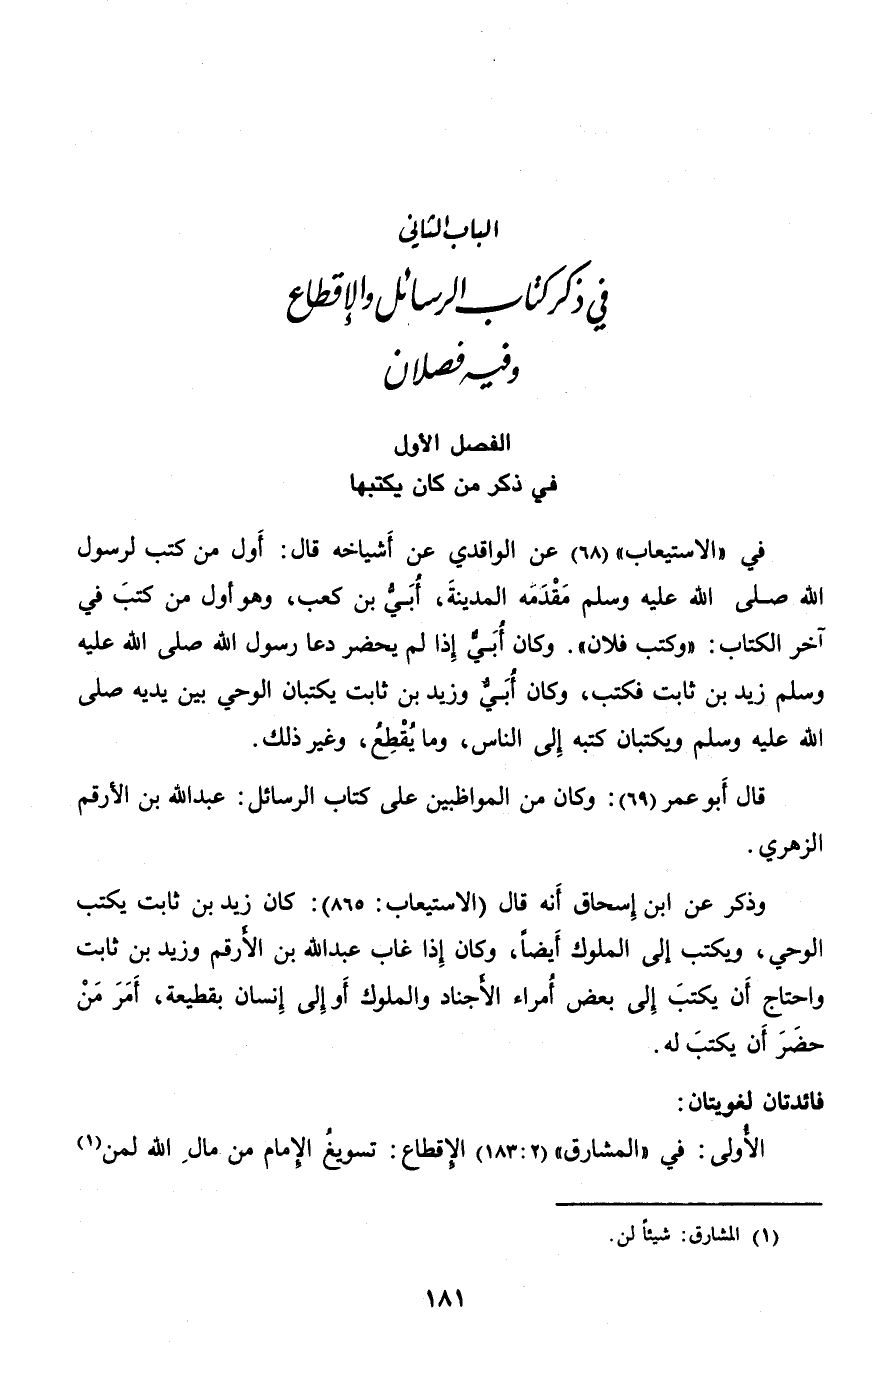 الباب الثاني
في ذكر كتاب الرسائل والإقطاع
وفيه فصلان
الفصل الأول
في ذكر من كان يكتبها
في «الاستيعاب» (٦٨) عن الواقدي عن أشياخه قال: أول من كتب لرسول
الله صلى الله عليه وسلم مَقْدَمَه المدينةَ، أُبَيُّ بن كعب، وهو أول من كتبَ في
آخر الكتاب: «وكتب فلان». وكان أُبَيٌّ إذا لم يحضر دعا رسول الله صلى الله عليه
وسلم زيد بن ثابت فكتب، وكان أُبَيٌّ وزيد بن ثابت يكتبان الوحي بين يديه صلى
الله عليه وسلم ويكتبان كتبه إلى الناس، وما يُقْطِعُ، وغير ذلك.
قال أبو عمر (٦٩): وكان من المواظبين على كتاب الرسائل: عبدالله بن الأرقم
الزهري.
وذكر عن ابن إسحاق أنه قال (الاستيعاب: ٨٦٥): كان زيد بن ثابت يكتب
الوحي، ويكتب إلى الملوك أيضاً، وكان إذا غاب عبدالله بن الأرقم وزيد بن ثابت
واحتاج أن يكتبَ إلى بعض أُمراء الأجناد والملوك أو إلى إنسان بقطيعة، أَمَرَ مَنْ
حضَرَ أن يكتبَ له.
فائدتان لغويتان:
الأُولى: في «المشارق» (٢: ١٨٣) الإقطاع: تسويغُ الإمام من مالِ الله لمن(١)
(١) المشارق: شيئاً لن.
١٨١